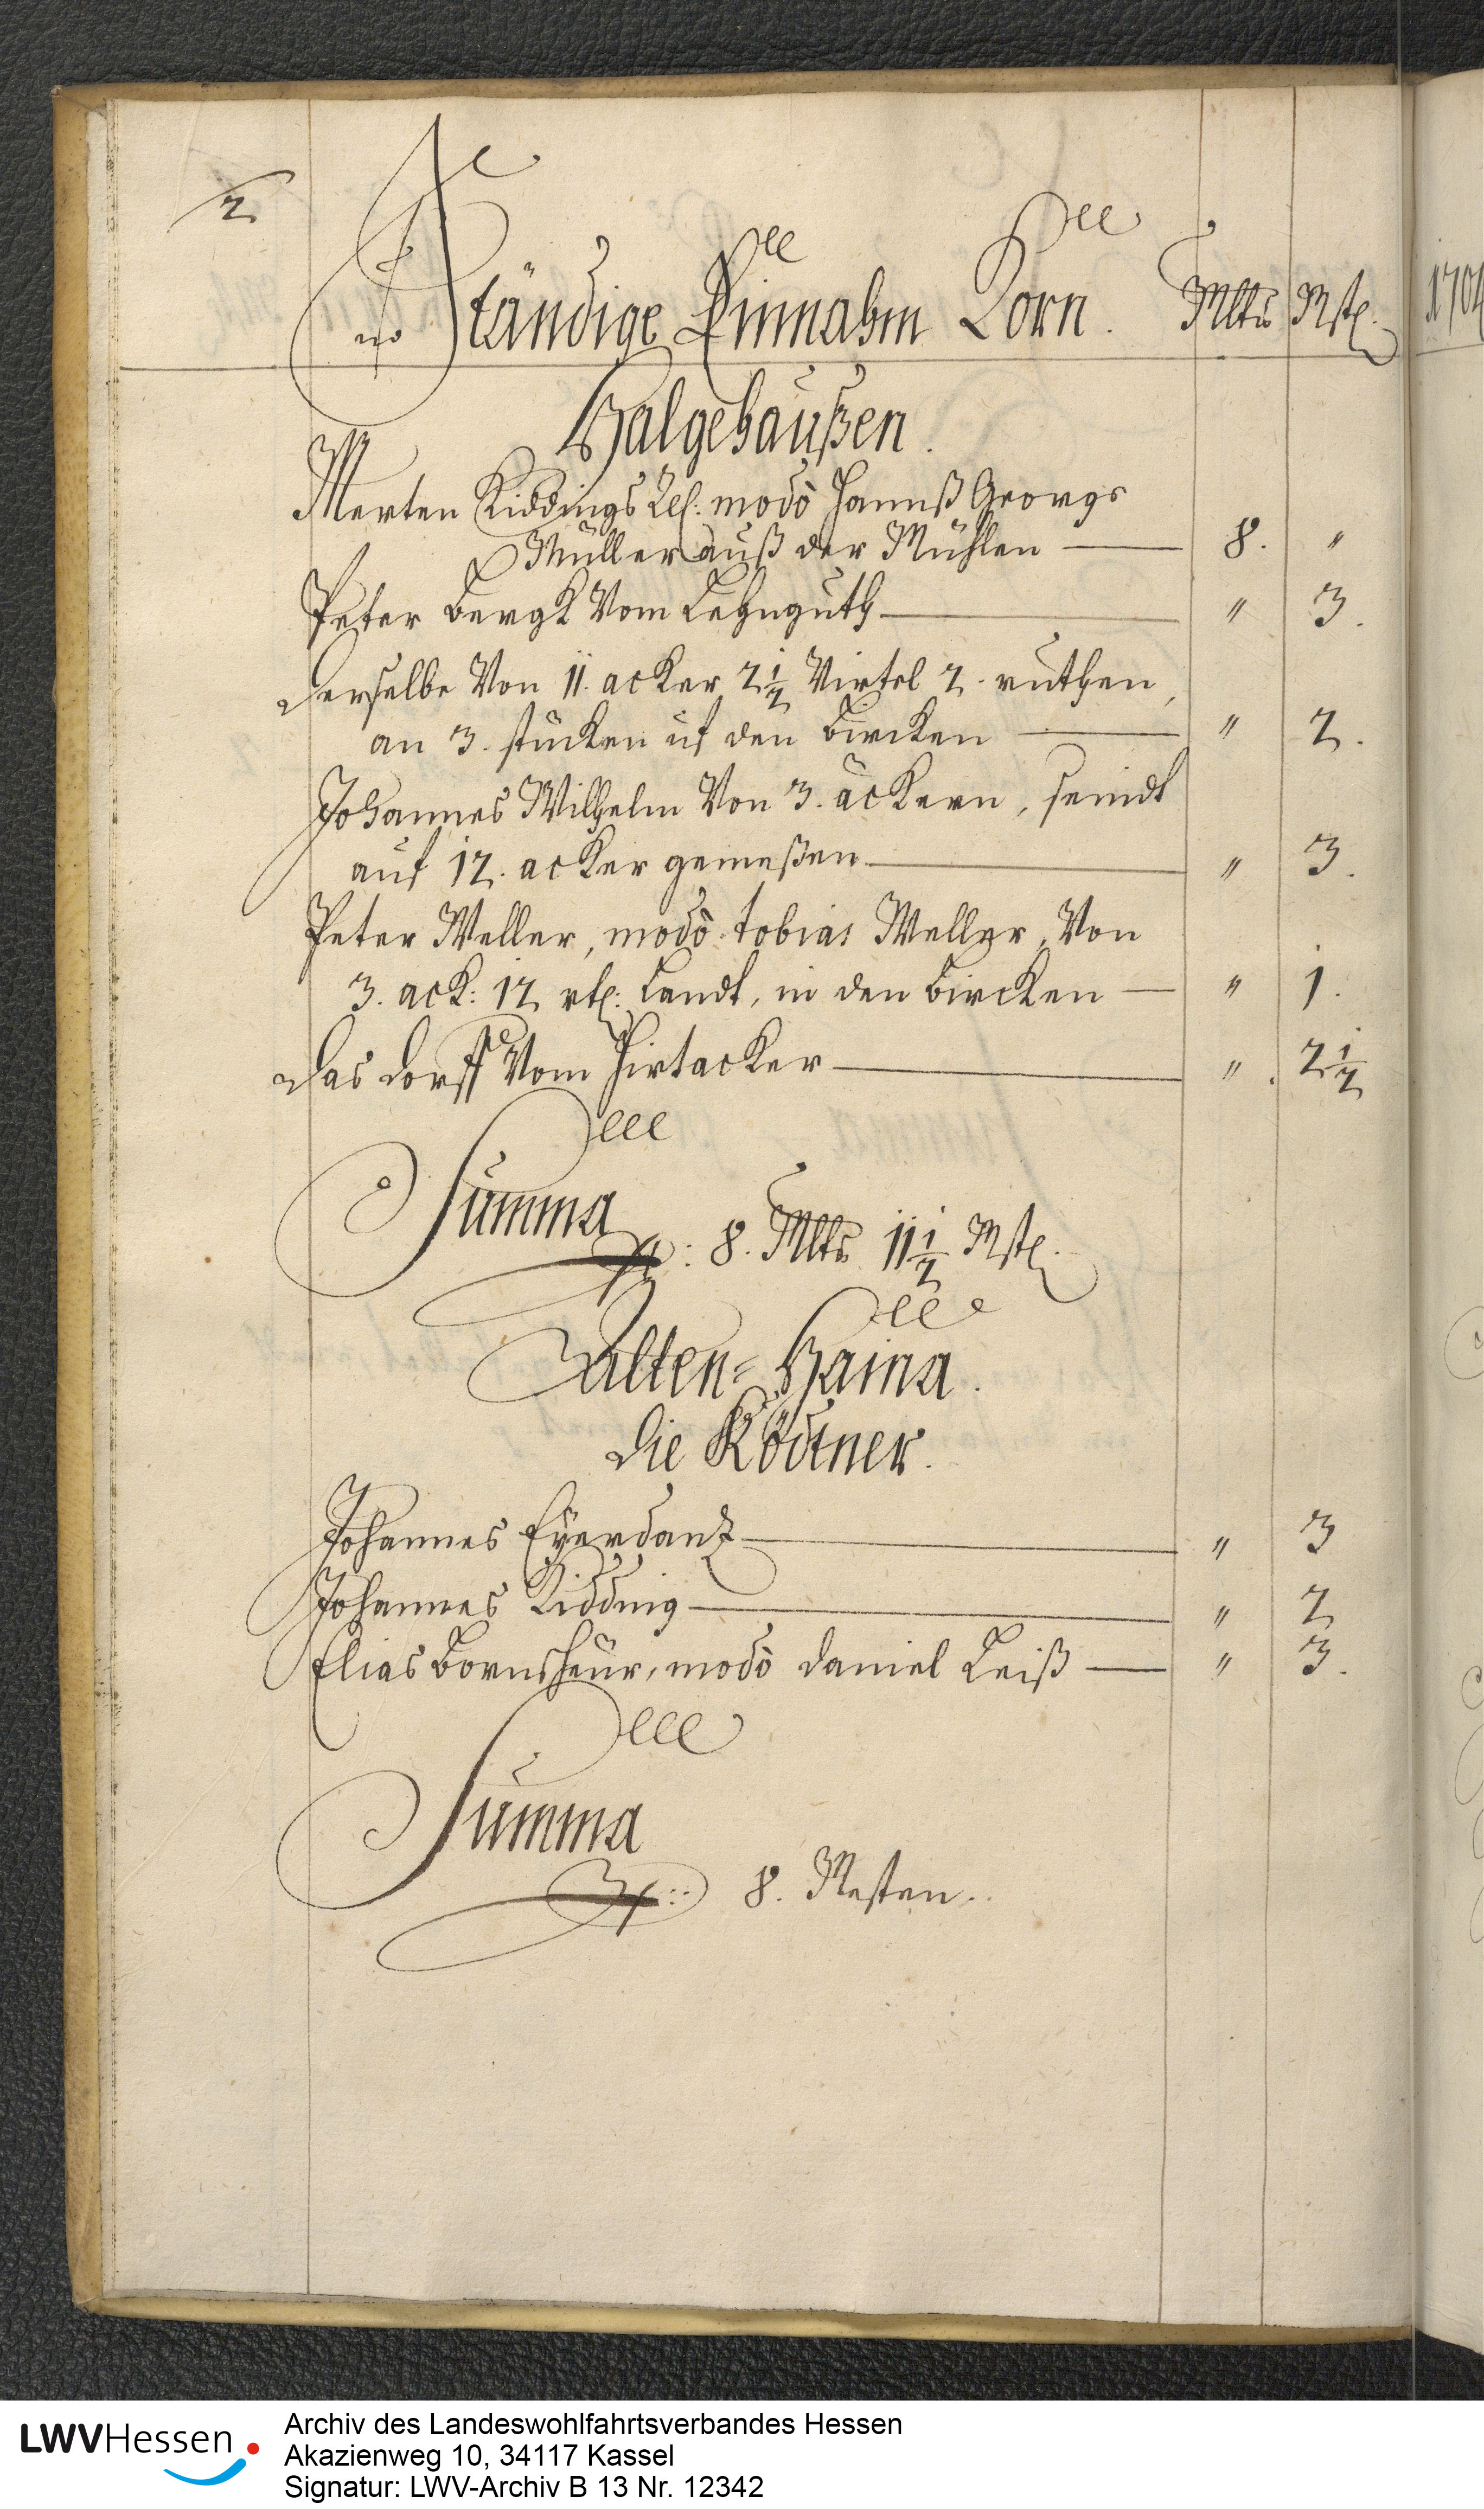 2
Ständige Einnahm Korn. Mltr Mste.
1704
Halgehaußen.
Merten Riddings Rel: modò Hannß Georgs
Müller auß der Mühlen — 8. "
Peter Bergk Vom Lehnguth — " 3.
Derselbe Von 11. acker 2½ Virtel 2. ruthen,
an 3. stücken uf den Bircken — " 2.
Johannes Wilhelm Von 3. äckern, seindt
auf 12. acker gemeßen — " 3.
Peter Weller, modò Tobias Weller, Von
3. ack: 12 rth: Landt, in den Bircken — " 1.
Das Dorff Vom Hirtacker — " 2½
Summa
: 8. Mltr 11½ Mste.
Alten-Haina.
Die Ködtner.
Johannes Eÿerdanz — " 3
Johannes Ridding — " 2
Elias Bornscheur, modò Daniel Leiß — " 3.
Summa
: 8. Mesten.
LWVHessen
Archiv des Landeswohlfahrtsverbandes Hessen
Akazienweg 10, 34117 Kassel
Signatur: LWV-Archiv B 13 Nr. 12342